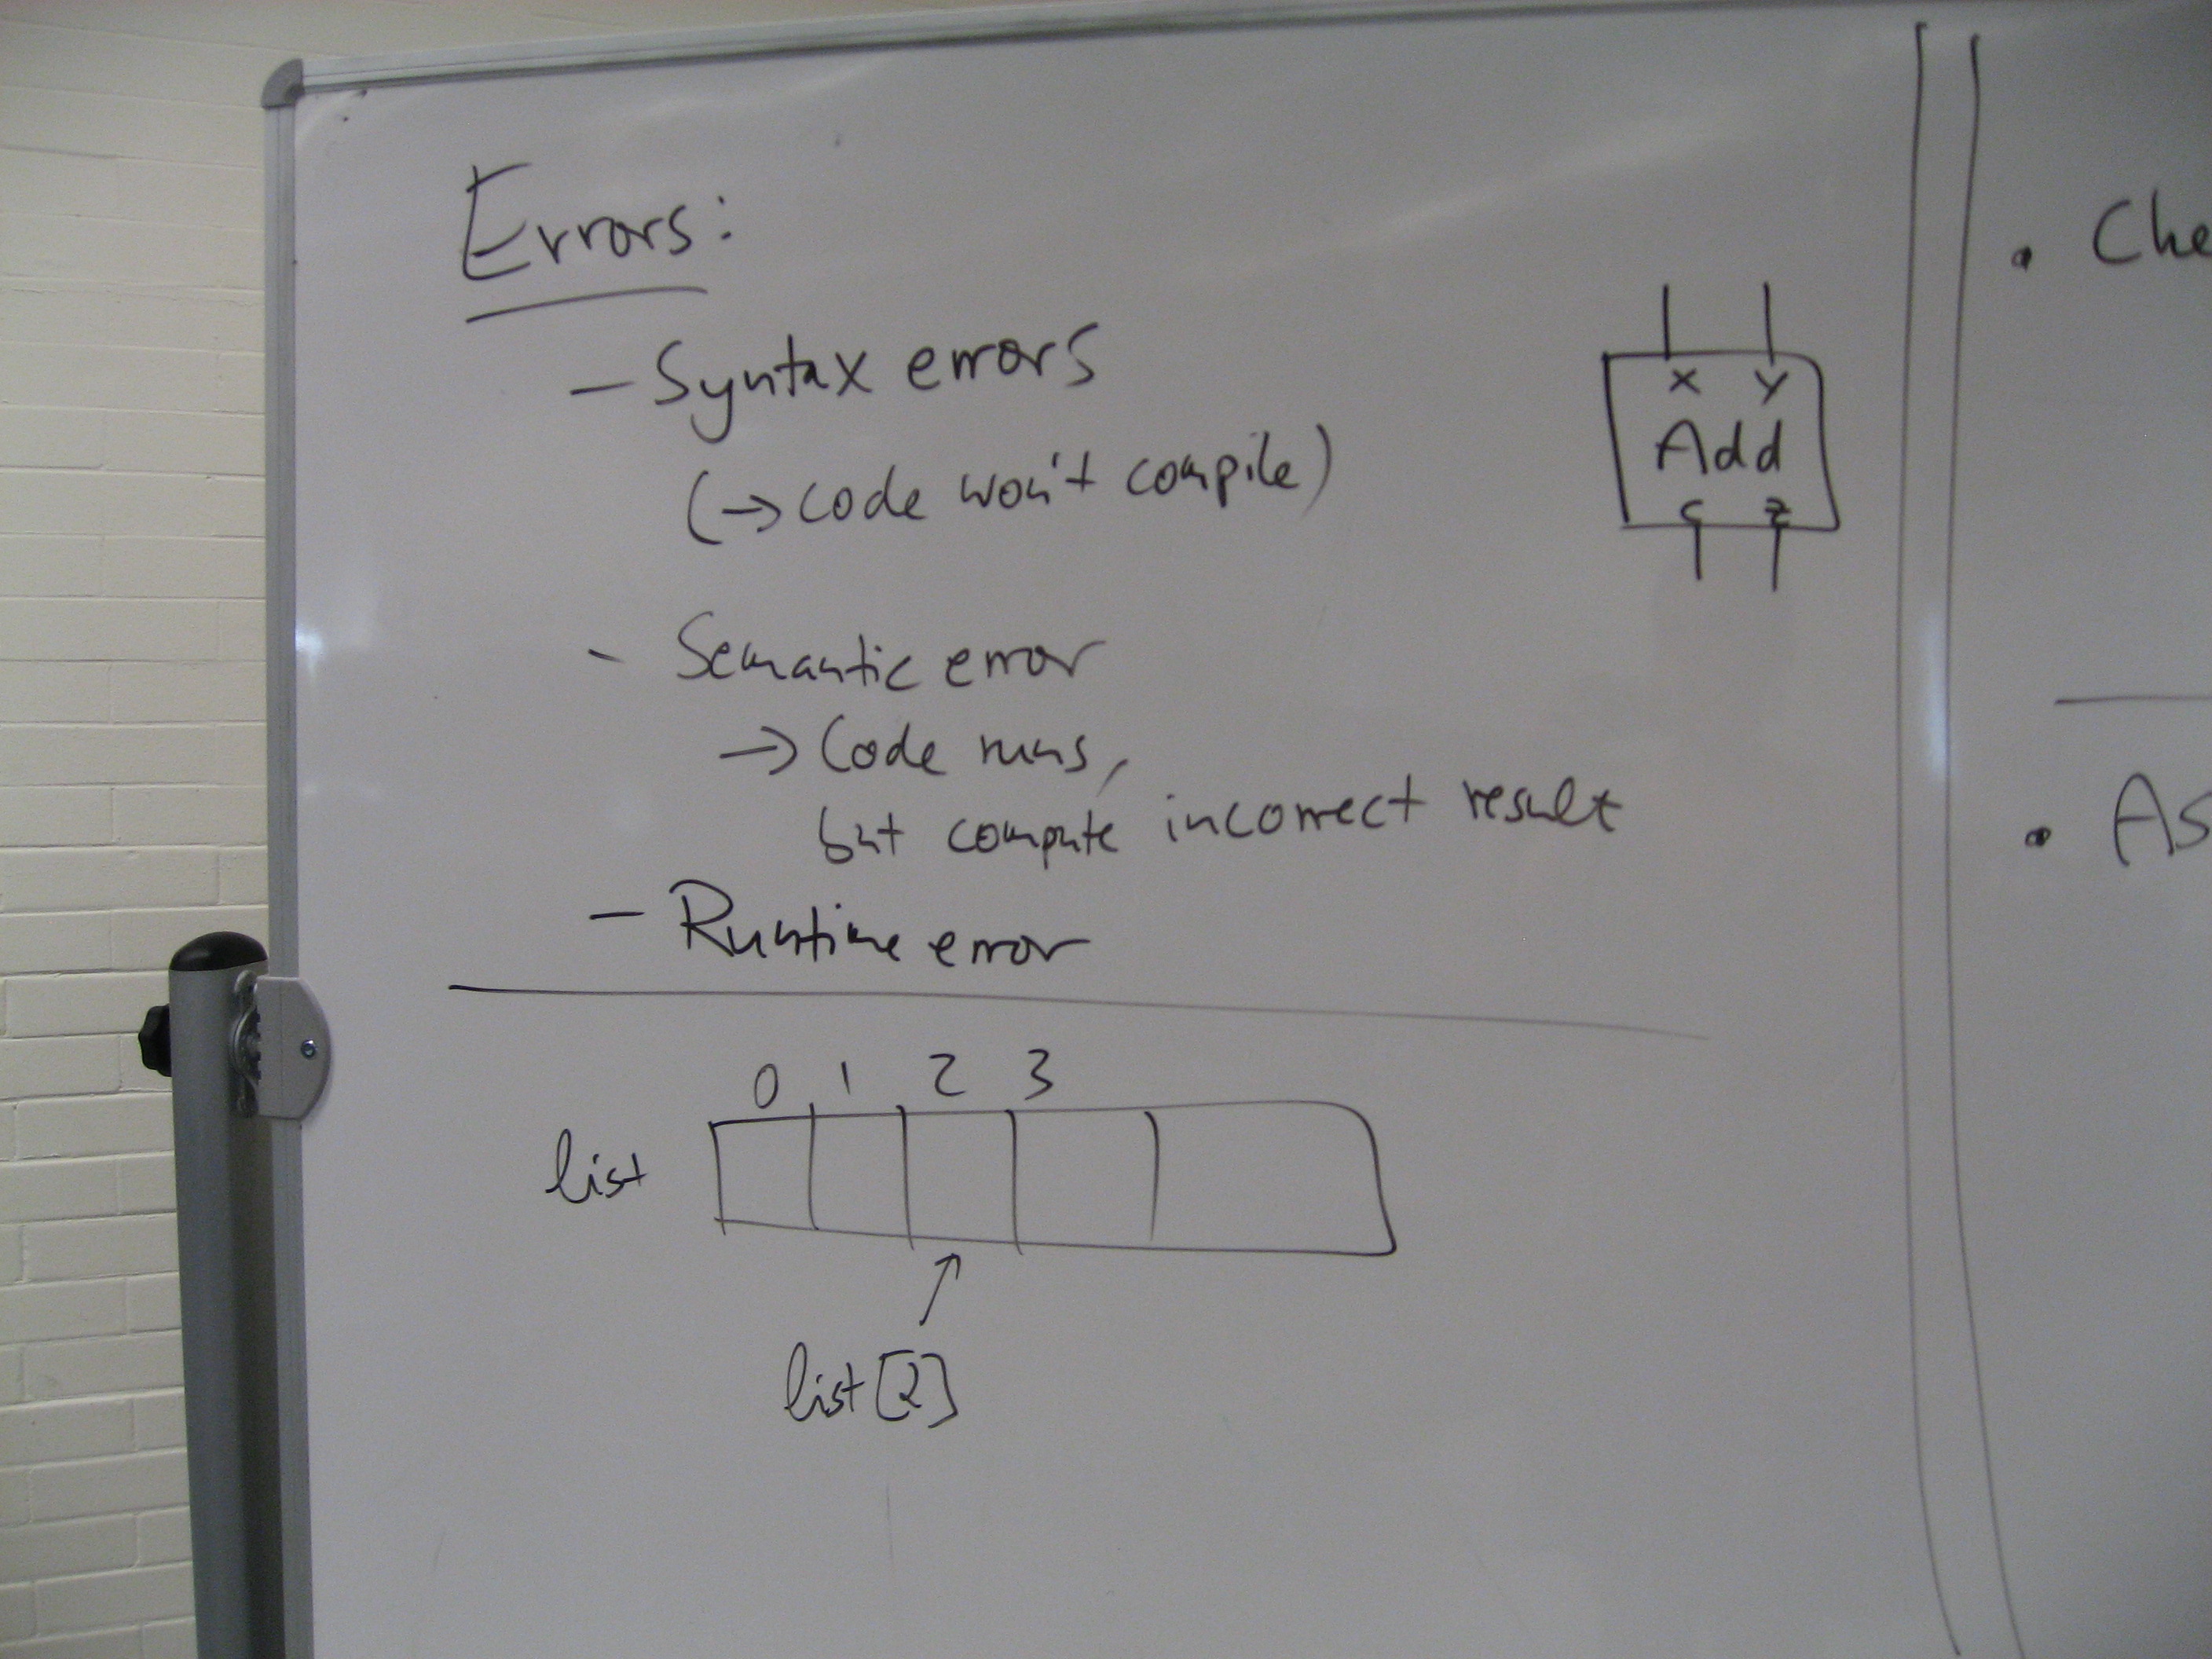 Errors:
– Syntax errors
(→ code won't compile)
- Semantic error
→ Code runs,
but compute incorrect result
– Runtime error
x y
Add
c z
0 1 2 3
list
list[2]
• Che
• As